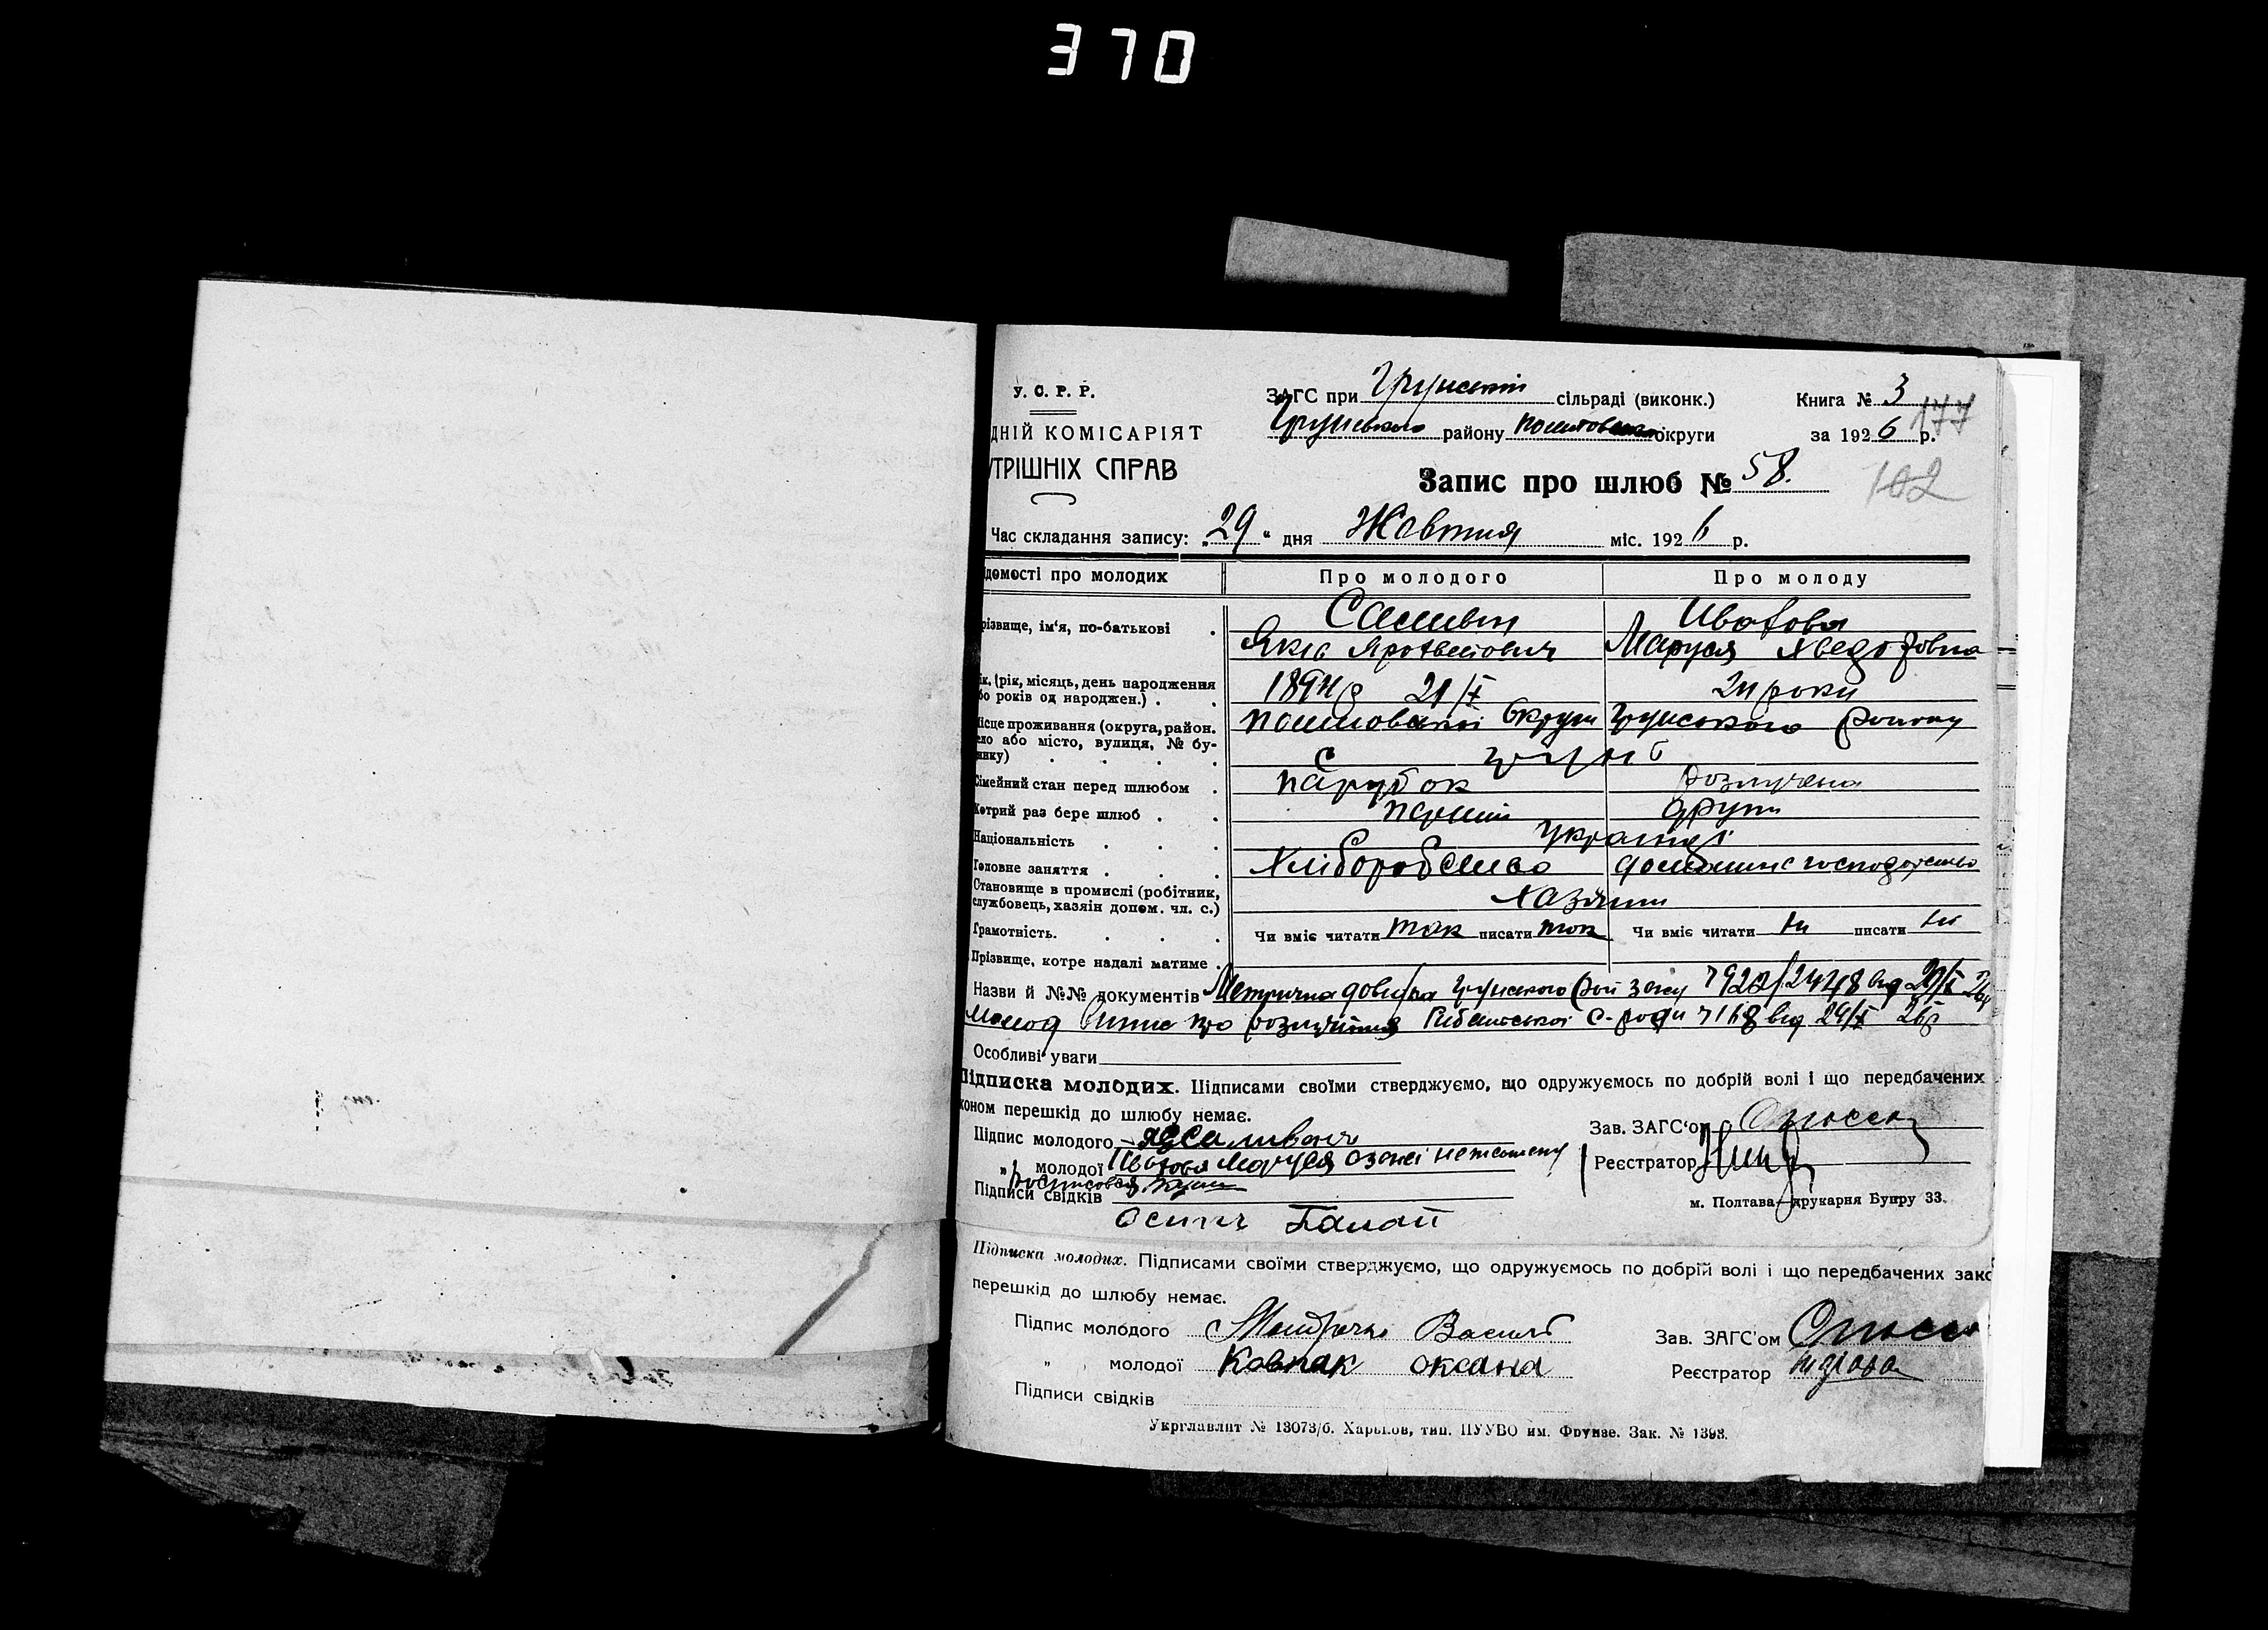 370
У. С. Р. Р.
ДНІЙ КОМІСАРІЯТ
ТРІШНІХ СПРАВ
ЗАГС при Грунській сільраді (виконк.)
Грунського району Полтовської округи
Книга № 3
за 1926 р.
177
Запис про шлюб № 58.
102
Час складання запису: „29“ дня Жовтня міс. 1926 р.
ідомості про молодих Про молодого Про молоду
різвище, ім‘я, по-батькові
Яків Маруся Хведоровна
ік. (рік, місяць, день народження
бо років од народжен.) . 21/X 24 роки
ісце проживання (округа, район.
ело або місто, вулиця, № бу-
инку) Полтовської Округи Грунського району
с Грунь
Сімейний стан перед шлюбом . парубок розлучена
Котрий раз бере шлюб . . перший другий
Національність . . . Українці
Головне заняття . . . Хліборобство домашнє господарство
Становище в промислі (робітник,
службовець, хазяін допом. чл. с.) Хазяїни
Грамотність. . . . Чи вміє читати так писати так Чи вміє читати ні писати ні
Прізвище, котре надалі матиме .
Назви й №№ документів Метрична довідка Грунського Рай загсу від 29/X 26р
про розлучіння с-ради № 168 від 29/X 26р
Особливі уваги
Підписка молодих. Підписами своїми стверджуємо, що одружуємось по добрій волі і що передбачених
коном перешкід до шлюбу немає.
Підпис молодого
„ молодої Маруся неписьмену
росписовся
Підписи свідків
Осипъ Палай
Зав. ЗАГС‘ом
Реєстратор
м. Полтава—друкарня Бупру 33.
Підписка молодих. Підписами своїми стверджуємо, що одружуємось по добрій волі і що передбачених зако
перешкід до шлюбу немає.
Підпис молодого Василь
„ молодої Ковпак Оксана
Підписи свідків
Зав. ЗАГС'ом
Реєстратор
Укрглавліт № 13073/б. Харьков, тип. ПУУВО им. Фрунзе. Зак. № 1393.